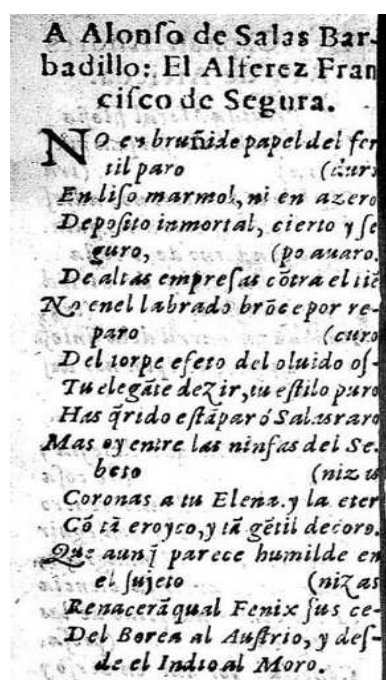 A Alonſo de Salas Bar-
badillo: El Alferez Fran
ciſco de Segura.
NO en bruñide papel del fer
til paro (duro
En liſo marmol, ni en azero
Depoſito inmortal, cierto y ſe
guro, (po auaro.
De altas empreſas cõtra el tiẽ
No enel labrado brõce por re-
paro (curo
Del torpe efeto del oluido oſ-
Tu elegãte dezir, tu eſtilo puro
Has q̃rido eſtãpar ó Salas raro
Mas oy entre las ninfas del Se-
beto (niz u
Coronas a tu Elena. y la eter
Cõ tã eroyco, y tã gẽtil decoro.
Que aunq̃ parece humilde en
el ſujeto (nizas
Renacerã qual Fenix ſus ce-
Del Borea al Auſtrio, y deſ-
de el Indio al Moro.